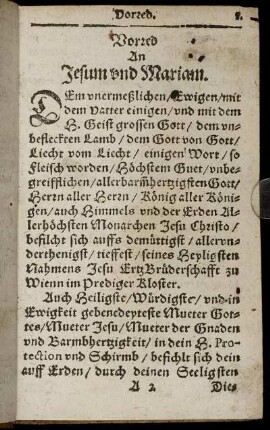 Vorred. 1.
Vorred
An
Jesum vnd Mariam.
DEm vnermeßlichen/Ewigen/mit
dem Vatter einigen/vnd mit dem
H. Geist grossen Gott/dem vn-
befleckten Lamb/dem Gott von Gott/
Liecht vom Liecht/einigen Wort/so
Fleisch worden/Höchstem Guet/vnbe-
greifflichen/allerbarmhertzigsten Gott/
Herrn aller Herrn/König aller Köni-
gen/auch Himmels vnd der Erden Al-
lerhöchsten Monarchen Jesu Christo/
befilcht sich auffs demüttigst/allervn-
derthenigst/tieffest/seines Heyligsten
Nahmens Jesu ErtzBrüderschafft zu
Wienn im Prediger Kloster.
Auch Heiligste/Würdigste/vnd in
Ewigkeit gebenedeyteste Mueter Got-
tes/Mueter Jesu/Mueter der Gnaden
vnd Barmbhertzigkeit/in dein H. Pro-
tection vnd Schirmb/befihlt sich dein
auff Erden/durch deinen Seeligsten
A 2 Die-